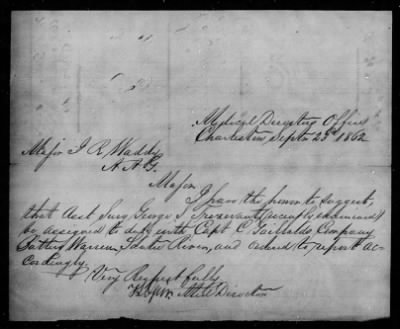 Medical Directors Office
Charleston, Septr 23d 1862
Major J R Waddy
A A G.
Major
I have the honor to suggest,
that Asst Surg George S. Trezevant, recently examined
be assigned to duty with Capt C. Gaillards Company
Battery Warren, Santee River, and ordered to report ac-
cordingly.
Very Respectfully
Med Director